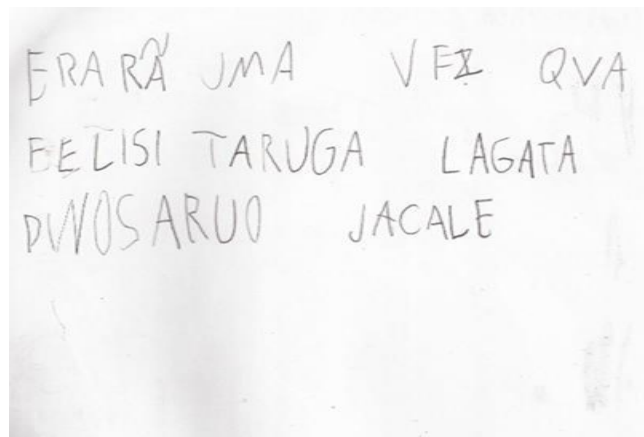 ERARÃ UMA VEZ QVA
FELISI TARUGA LAGATA
DWOSARUO JACALE